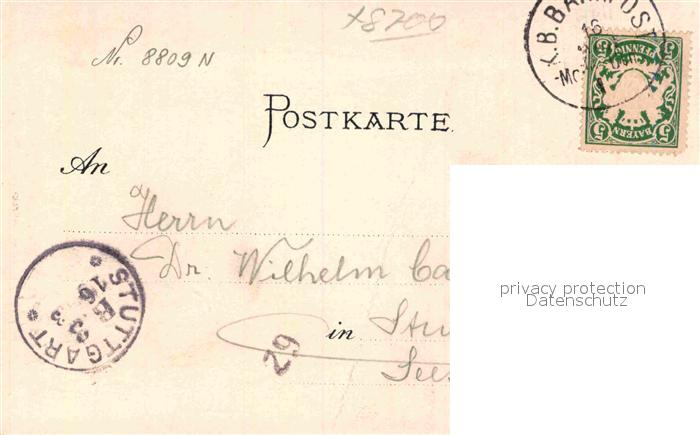 ×8700
Nr. 8809 N
K.B. BAHNPOST
16
5 PFENNIG 5
5 BAYERN 5
POSTKARTE
An
Herrn
Dr. Wilhelm
in
STUTTGART
16
29
privacy protection
Datenschutz